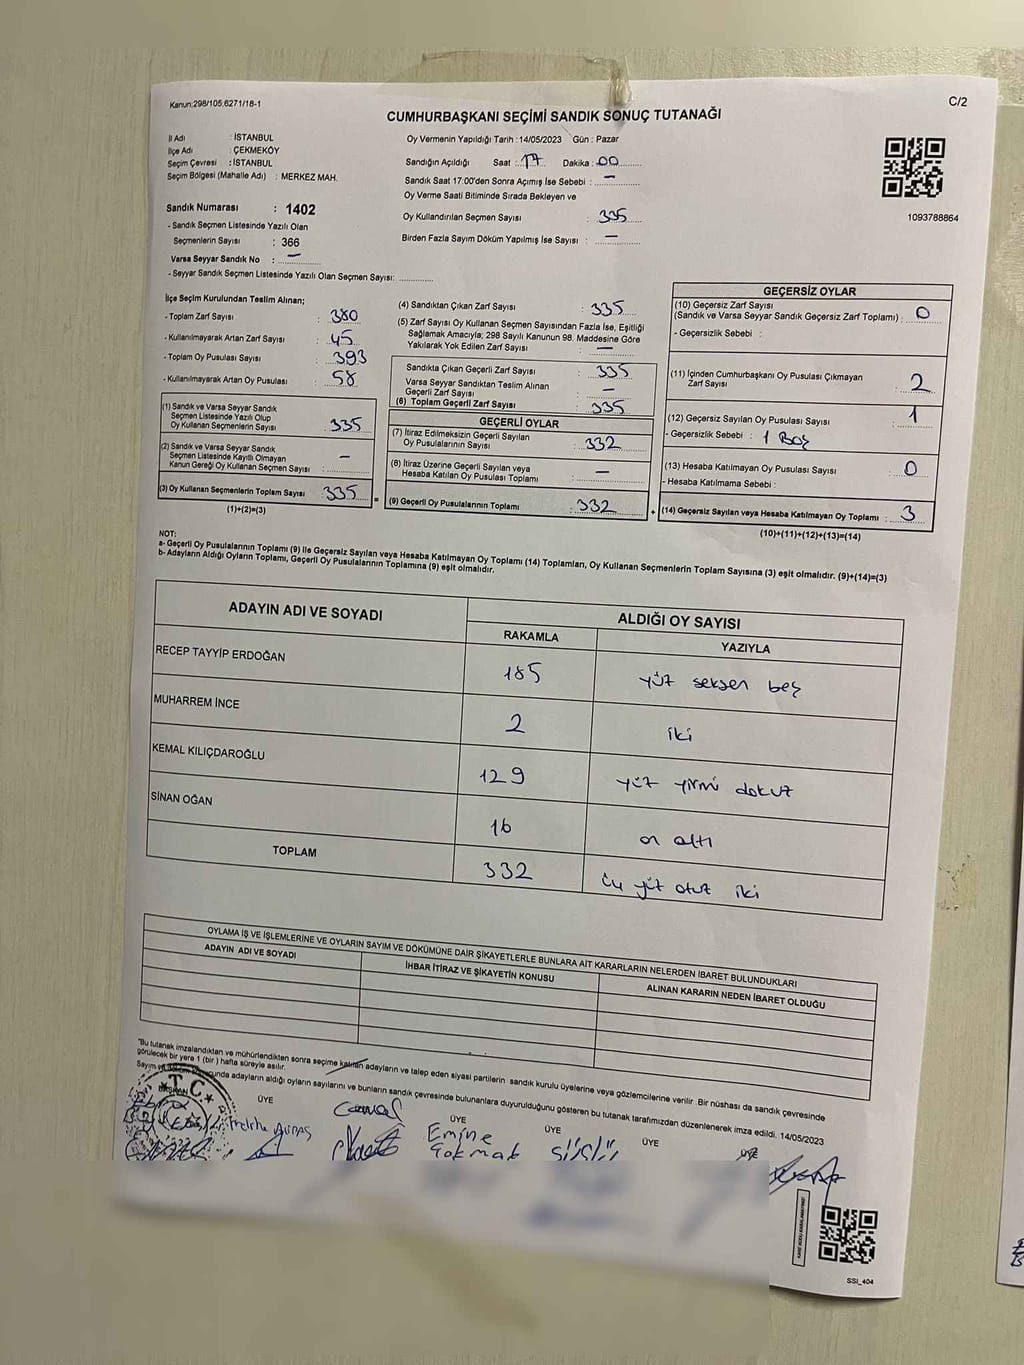 Kanun:298/105,6271/18-1
C/2
CUMHURBAŞKANI SEÇİMİ SANDIK SONUÇ TUTANAĞI
İl Adı : İSTANBUL
İlçe Adı : ÇEKMEKÖY
Seçim Çevresi : İSTANBUL
Seçim Bölgesi (Mahalle Adı) : MERKEZ MAH.
Oy Vermenin Yapıldığı Tarih :14/05/2023 Gün : Pazar
Sandığın Açıldığı Saat : 17 Dakika : 00
Sandık Saat 17:00'den Sonra Açımış İse Sebebi : —
Oy Verme Saati Bitiminde Sırada Bekleyen ve
Oy Kullandırılan Seçmen Sayısı : 335
Birden Fazla Sayım Döküm Yapılmış İse Sayısı : —
1093788864
Sandık Numarası : 1402
- Sandık Seçmen Listesinde Yazılı Olan
Seçmenlerin Sayısı : 366
Varsa Seyyar Sandık No : —
- Seyyar Sandık Seçmen Listesinde Yazılı Olan Seçmen Sayısı:
İlçe Seçim Kurulundan Teslim Alınan;
- Toplam Zarf Sayısı : 380
- Kullanılmayarak Artan Zarf Sayısı : 45
- Toplam Oy Pusulası Sayısı : 393
- Kullanılmayarak Artan Oy Pusulası : 58
(1) Sandık ve Varsa Seyyar Sandık
Seçmen Listesinde Yazılı Olup
Oy Kullanan Seçmenlerin Sayısı : 335
(2) Sandık ve Varsa Seyyar Sandık
Seçmen Listesinde Kayıtlı Olmayan
Kanun Gereği Oy Kullanan Seçmen Sayısı : —
(3) Oy Kullanan Seçmenlerin Toplam Sayısı : 335 =
(1)+(2)=(3)
(4) Sandıktan Çıkan Zarf Sayısı : 335
(5) Zarf Sayısı Oy Kullanan Seçmen Sayısından Fazla İse, Eşitliği
Sağlamak Amacıyla; 298 Sayılı Kanunun 98. Maddesine Göre
Yakılarak Yok Edilen Zarf Sayısı : —
Sandıkta Çıkan Geçerli Zarf Sayısı : 335
Varsa Seyyar Sandıktan Teslim Alınan
Geçerli Zarf Sayısı : —
(6) Toplam Geçerli Zarf Sayısı : 335
GEÇERLİ OYLAR
(7) İtiraz Edilmeksizin Geçerli Sayılan
Oy Pusulalarının Sayısı : 332
(8) İtiraz Üzerine Geçerli Sayılan veya
Hesaba Katılan Oy Pusulası Toplamı : —
(9) Geçerli Oy Pusulalarının Toplamı : 332 +
GEÇERSİZ OYLAR
(10) Geçersiz Zarf Sayısı
(Sandık ve Varsa Seyyar Sandık Geçersiz Zarf Toplamı) : 0
- Geçersizlik Sebebi :
(11) İçinden Cumhurbaşkanı Oy Pusulası Çıkmayan
Zarf Sayısı : 2
(12) Geçersiz Sayılan Oy Pusulası Sayısı : 1
- Geçersizlik Sebebi : 1 Boş
(13) Hesaba Katılmayan Oy Pusulası Sayısı : 0
- Hesaba Katılmama Sebebi :
(14) Geçersiz Sayılan veya Hesaba Katılmayan Oy Toplamı : 3
(10)+(11)+(12)+(13)=(14)
NOT:
a- Geçerli Oy Pusulalarının Toplamı (9) ile Geçersiz Sayılan veya Hesaba Katılmayan Oy Toplamı (14) Toplamları, Oy Kullanan Seçmenlerin Toplam Sayısına (3) eşit olmalıdır. (9)+(14)=(3)
b- Adayların Aldığı Oyların Toplamı, Geçerli Oy Pusulalarının Toplamına (9) eşit olmalıdır.
ADAYIN ADI VE SOYADI ALDIĞI OY SAYISI
RAKAMLA YAZIYLA
RECEP TAYYİP ERDOĞAN 185 yüz seksen beş
MUHARREM İNCE 2 iki
KEMAL KILIÇDAROĞLU 129 yüz yirmi dokuz
SİNAN OĞAN 16 on altı
TOPLAM 332 üç yüz otuz iki
OYLAMA İŞ VE İŞLEMLERİNE VE OYLARIN SAYIM VE DÖKÜMÜNE DAİR ŞİKAYETLERLE BUNLARA AİT KARARLARIN NELERDEN İBARET BULUNDUKLARI
ADAYIN ADI VE SOYADI İHBAR İTİRAZ VE ŞİKAYETİN KONUSU ALINAN KARARIN NEDEN İBARET OLDUĞU
"Bu tutanak imzalandıktan ve mühürlendikten sonra seçime katılan adayların ve talep eden siyasi partilerin sandık kurulu üyelerine veya gözlemcilerine verilir .Bir nüshası da sandık çevresinde
görülecek bir yere 1 (bir ) hafta süreyle asılır.
Sayım adayların aldığı oyların sayılarını ve bunların sandık çevresinde bulunanlara duyurulduğunu gösteren bu tutanak tarafımızdan düzenlenerek imza edildi. 14/05/2023
T.C.
BAŞKAN ÜYE ÜYE ÜYE ÜYE ÜYE
Emine
Tokmak
SSI_404